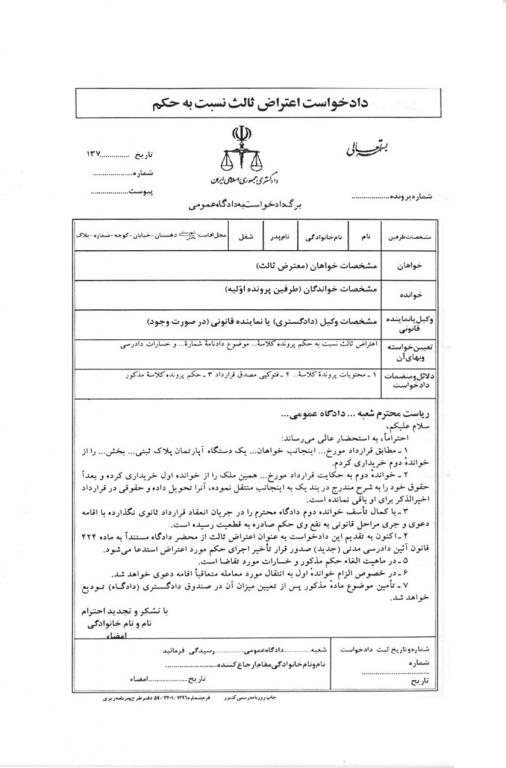 دادخواست اعتراض ثالث نسبت به حکم
بسمه تعالی
تاریخ ............... ۱۳۷
شماره......................
پیوست....................
دادگستری جمهوری اسلامی ایران
شماره پرونده....................
برگ دادخواست به دادگاه عمومی
مشخصات طرفین | نام | نام خانوادگی | نام پدر | شغل | محل اقامت: دهستان -خیابان -کوچه -شماره -پلاک
خواهان | مشخصات خواهان (معترض ثالث)
خوانده | مشخصات خواندگان (طرفین پرونده اوّلیه)
وکیل یا نماینده قانونی | مشخصات وکیل (دادگستری) یا نماینده قانونی (در صورت وجود)
تعیین خواسته وبهای آن | اعتراض ثالث نسبت به حکم پرونده کلاسهٔ... موضوع دادنامهٔ شمارهٔ... و خسارات دادرسی
دلائل و منضمات دادخواست | ۱ ـ محتویات پروندهٔ کلاسهٔ... ۲ ـ فتوکپی مصدق قرارداد ۳ ـ حکم پرونده کلاسهٔ مذکور
ریاست محترم شعبه ... دادگاه عمومی...
سلام علیکم،
احتراماً، به استحضار عالی می‌رساند:
۱ ـ مطابق قرارداد مورخ... اینجانب خواهان... یک دستگاه آپارتمان پلاک ثبتی... بخش... را از
خواندهٔ دوم خریداری کردم.
۲ ـ خواندهٔ دوم به حکایت قرارداد مورخ... همین ملک را از خوانده اول خریداری کرده و بعداً
حقوق خود را به شرح مندرج در بند یک به اینجانب منتقل نموده، آنرا تحویل داده و حقوقی در قرارداد
اخیرالذکر برای او باقی نمانده است.
۳ ـ با کمال تأسف خوانده دوم دادگاه محترم را در جریان انعقاد قرارداد ثانوی نگذارده با اقامه
دعوی و جری مراحل قانونی به نفع وی حکم صادره به قطعیت رسیده است.
۴ ـ اکنون به تقدیم این دادخواست به عنوان اعتراض ثالث از محضر دادگاه مستنداً به ماده ۴۲۴
قانون آئین دادرسی مدنی (جدید) صدور قرار تأخیر اجرای حکم مورد اعتراض استدعا می‌شود.
۵ ـ در ماهیت الغاء حکم مذکور و خسارات مورد تقاضا است.
۶ ـ در خصوص الزام خواندهٔ اول به انتقال مورد معامله متعاقباً اقامه دعوی خواهد شد.
۷ ـ تأمین موضوع مادهٔ مذکور پس از تعیین میزان آن در صندوق دادگستری (دادگاه) تودیع
خواهد شد.
با تشکر و تجدید احترام
نام و نام خانوادگی
امضاء
شماره و تاریخ ثبت دادخواست
شماره
تاریخ
شعبه.............دادگاه عمومی.............رسیدگی فرمائید
نام و نام خانوادگی مقام ارجاع کننده....................
تاریخ....................امضاء
چاپ روزنامه رسمی کشور